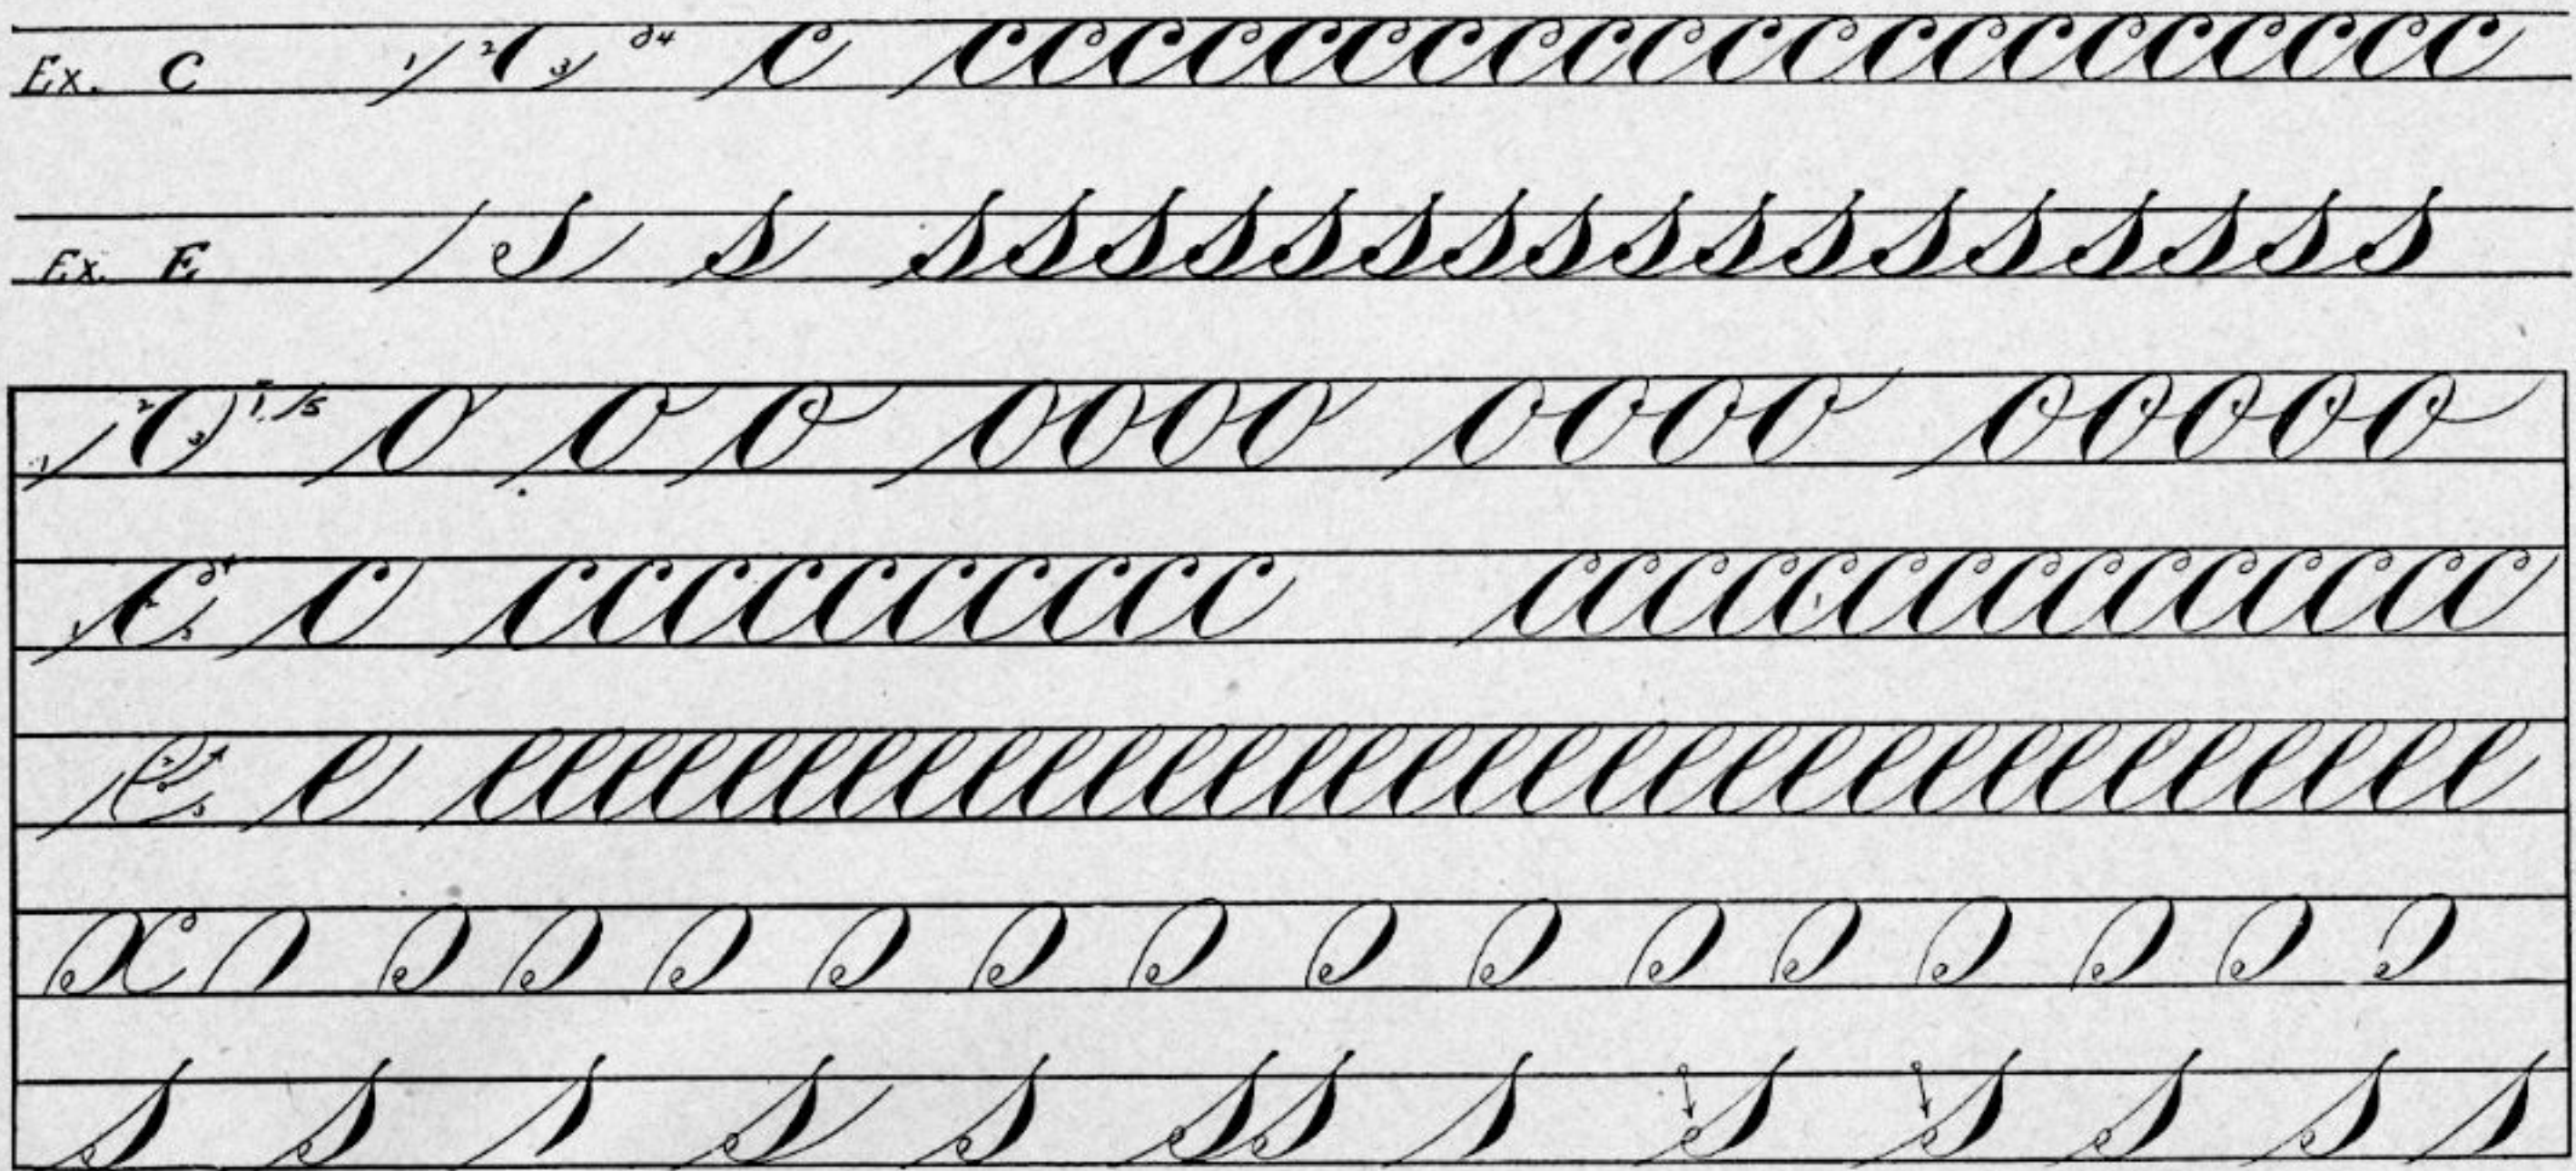 Ex. C 1 2 c 3 4 c cccccccccccccccccccccc
Ex. E s s sssssssssssssssss
1 2 o 3 4 5 o o o oooo oooo ooooo
1 c 2 3 4 c cccccccccc cccccccccccccc
e 2 3 e eeeeeeeeeeeeeeeeeeeeeeeeeeeeeeeeeeee
x
s s s s s ss s s s s s s